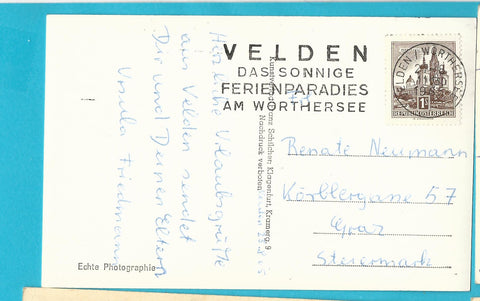 VELDEN
DAS SONNIGE
FERIENPARADIES
AM WÖRTHERSEE
VELDEN / WÖRTHERSEE
1S
REPUBLIK ÖSTERREICH
Herzliche Urlaubsgrüße
aus Velden sendet
Dir und Deinen Eltern
Ursula Friedmann
Kunstverlag Franz Schilcher, Klagenfurt, Kramerg. 9
Nachdruck verboten
Renate Neumann
Körblergasse 57
Graz
Steiermark
Echte Photographie